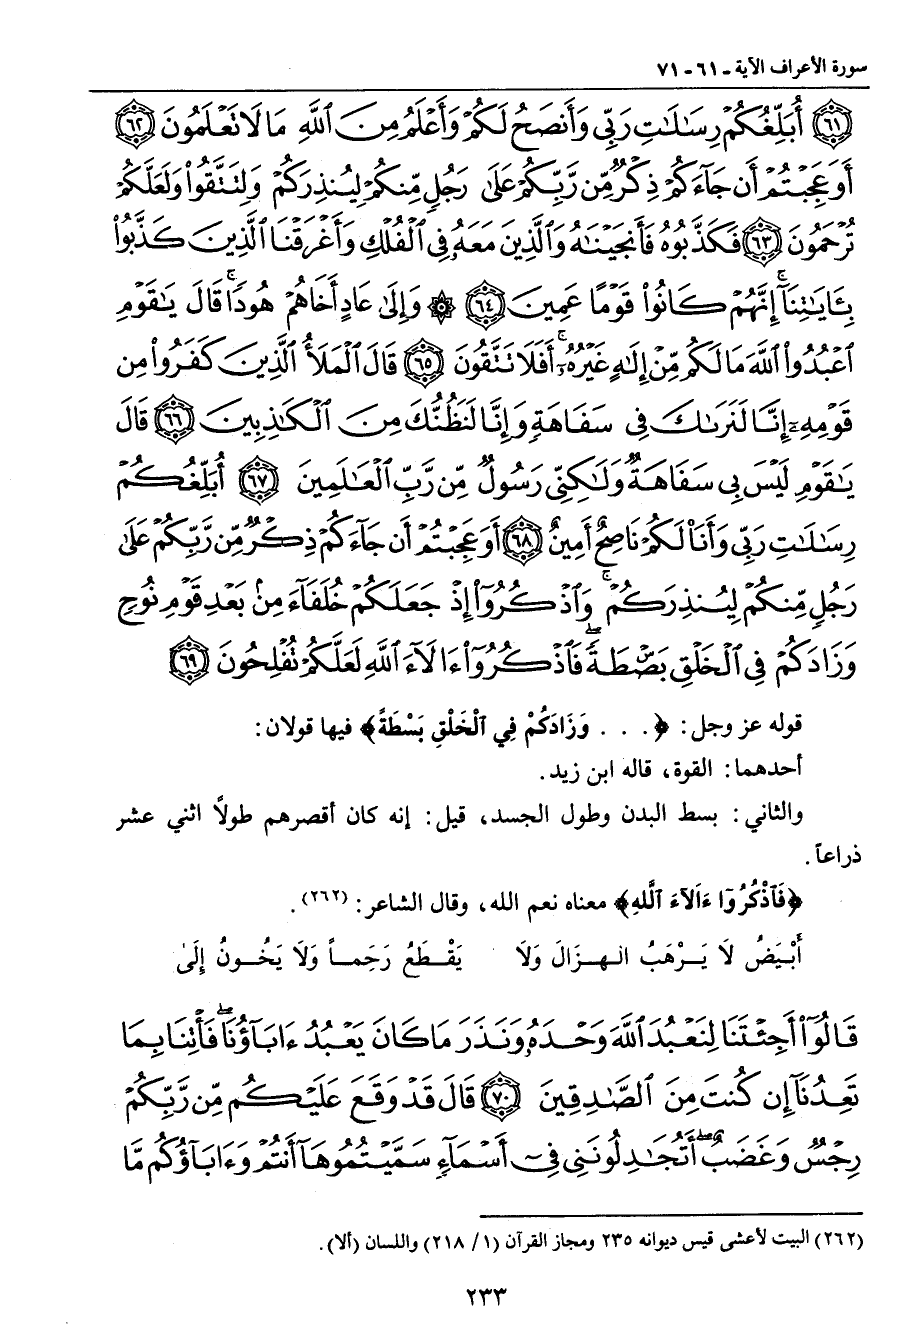 سورة الأعراف الآية - ٦١ - ٧١
﴿٦١﴾ أُبَلِّغُكُمْ رِسَالَاتِ رَبِّي وَأَنصَحُ لَكُمْ وَأَعْلَمُ مِنَ اللَّهِ مَا لَا تَعْلَمُونَ ﴿٦٢﴾
أَوَعَجِبْتُمْ أَن جَاءَكُمْ ذِكْرٌ مِّن رَّبِّكُمْ عَلَى رَجُلٍ مِّنكُمْ لِيُنذِرَكُمْ وَلِتَتَّقُوا وَلَعَلَّكُمْ
تُرْحَمُونَ ﴿٦٣﴾ فَكَذَّبُوهُ فَأَنجَيْنَاهُ وَالَّذِينَ مَعَهُ فِي الْفُلْكِ وَأَغْرَقْنَا الَّذِينَ كَذَّبُوا
بِـَٔايَاتِنَا إِنَّهُمْ كَانُوا قَوْمًا عَمِينَ ﴿٦٤﴾ ۞ وَإِلَى عَادٍ أَخَاهُمْ هُودًا قَالَ يَاقَوْمِ
اعْبُدُوا اللَّهَ مَا لَكُم مِّنْ إِلَهٍ غَيْرُهُ أَفَلَا تَتَّقُونَ ﴿٦٥﴾ قَالَ الْمَلَأُ الَّذِينَ كَفَرُوا مِن
قَوْمِهِ إِنَّا لَنَرَاكَ فِي سَفَاهَةٍ وَإِنَّا لَنَظُنُّكَ مِنَ الْكَاذِبِينَ ﴿٦٦﴾ قَالَ
يَاقَوْمِ لَيْسَ بِي سَفَاهَةٌ وَلَاكِنِّي رَسُولٌ مِّن رَّبِّ الْعَالَمِينَ ﴿٦٧﴾ أُبَلِّغُكُمْ
رِسَالَاتِ رَبِّي وَأَنَا لَكُمْ نَاصِحٌ أَمِينٌ ﴿٦٨﴾ أَوَعَجِبْتُمْ أَن جَاءَكُمْ ذِكْرٌ مِّن رَّبِّكُمْ عَلَى
رَجُلٍ مِّنكُمْ لِيُنذِرَكُمْ وَاذْكُرُوا إِذْ جَعَلَكُمْ خُلَفَاءَ مِن بَعْدِ قَوْمِ نُوحٍ
وَزَادَكُمْ فِي الْخَلْقِ بَصْطَةً فَاذْكُرُوا ءَالَاءَ اللَّهِ لَعَلَّكُمْ تُفْلِحُونَ ﴿٦٩﴾
قوله عز وجل: ﴿. . . وَزَادَكُمْ فِي الْخَلْقِ بَسْطَةً﴾ فيها قولان:
أحدهما: القوة، قاله ابن زيد.
والثاني: بسط البدن وطول الجسد، قيل: إنه كان أقصرهم طولًا اثني عشر
ذراعاً.
﴿فَاذْكُرُوا ءَالَاءَ اللَّهِ﴾ معناه نعم الله، وقال الشاعر: (٢٦٢).
أَبْيَضُ لَا يَرْهَبُ الهزَالَ وَلَا يَقْطَعُ رَحِماً وَلَا يَخُونُ إِلَىٰ
قَالُوا أَجِئْتَنَا لِنَعْبُدَ اللَّهَ وَحْدَهُ وَنَذَرَ مَا كَانَ يَعْبُدُ ءَابَاؤُنَا فَأْتِنَا بِمَا
تَعِدُنَا إِن كُنتَ مِنَ الصَّادِقِينَ ﴿٧٠﴾ قَالَ قَدْ وَقَعَ عَلَيْكُم مِّن رَّبِّكُمْ
رِجْسٌ وَغَضَبٌ أَتُجَادِلُونَنِي فِي أَسْمَاءٍ سَمَّيْتُمُوهَا أَنتُمْ وَءَابَاؤُكُم مَّا
(٢٦٢) البيت لأعشى قيس ديوانه ٢٣٥ ومجاز القرآن (١/ ٢١٨) واللسان (ألا).
٢٣٣